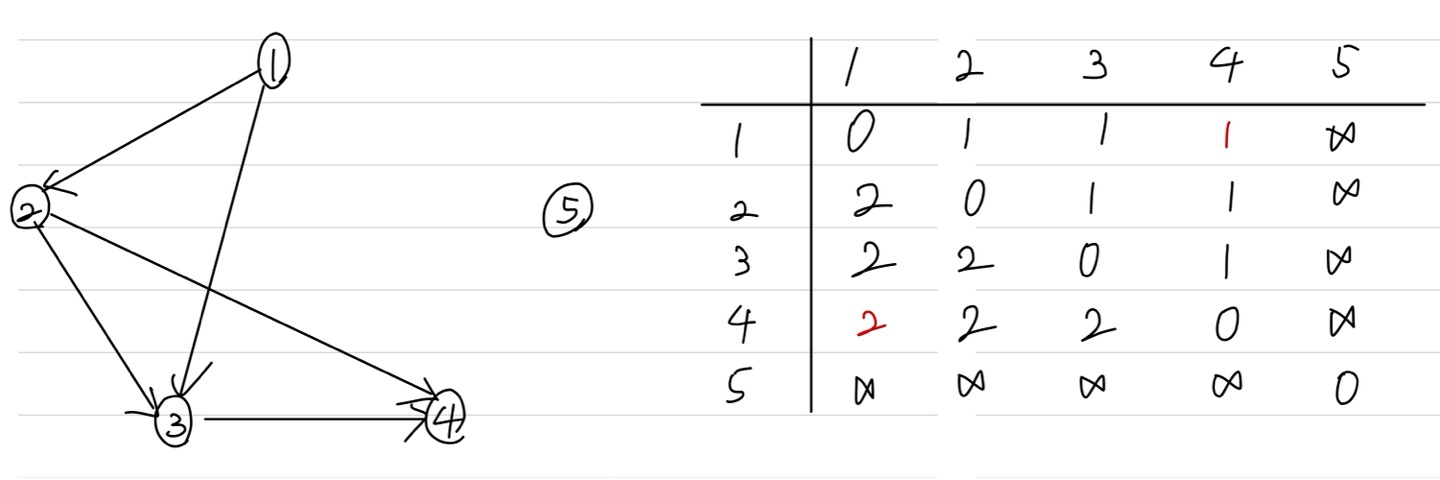 1
2
5
3
4
1 2 3 4 5
1 0 1 1 1 ∞
2 2 0 1 1 ∞
3 2 2 0 1 ∞
4 2 2 2 0 ∞
5 ∞ ∞ ∞ ∞ 0